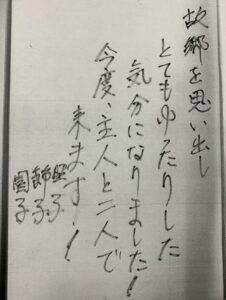 故郷を思い出し
とてもゆったりした
気分になりました!
今度、主人と二人で
来ます!
照子
節子
園子